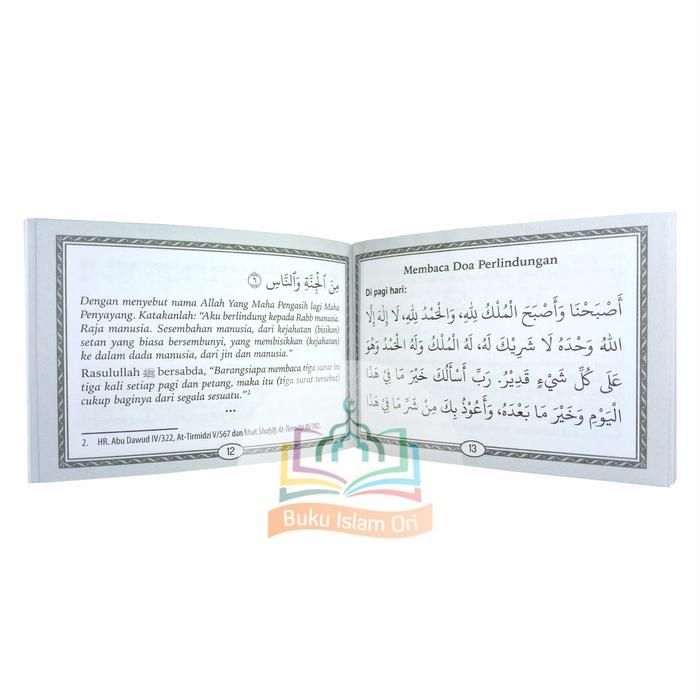 مِنَ ٱلْجِنَّةِ وَٱلنَّاسِ ٦
Dengan menyebut nama Allah Yang Maha Pengasih lagi Maha
Penyayang. Katakanlah: “Aku berlindung kepada Rabb manusia.
Raja manusia. Sesembahan manusia, dari kejahatan (bisikan)
setan yang biasa bersembunyi, yang membisikkan (kejahatan)
ke dalam dada manusia, dari jin dan manusia.”
Rasulullah ﷺ bersabda, “Barangsiapa membaca tiga surat ini
tiga kali setiap pagi dan petang, maka itu (tiga surat tersebut)
cukup baginya dari segala sesuatu.”2
...
2. HR. Abu Dawud IV/322, At-Tirmidzi V/567 dan lihat Shahih At-Tirmidzi III/182.
12
Membaca Doa Perlindungan
Di pagi hari:
أَصْبَحْنَا وَأَصْبَحَ الْمُلْكُ لِلَّهِ، وَالْحَمْدُ لِلَّهِ، لَا إِلٰهَ إِلَّا
اللهُ وَحْدَهُ لَا شَرِيْكَ لَهُ، لَهُ الْمُلْكُ وَلَهُ الْحَمْدُ وَهُوَ
عَلَى كُلِّ شَيْءٍ قَدِيْرٌ. رَبِّ أَسْأَلُكَ خَيْرَ مَا فِيْ هٰذَا
الْيَوْمِ وَخَيْرَ مَا بَعْدَهُ، وَأَعُوْذُ بِكَ مِنْ شَرِّ مَا فِيْ هٰذَا
13
Buku Islam Ori